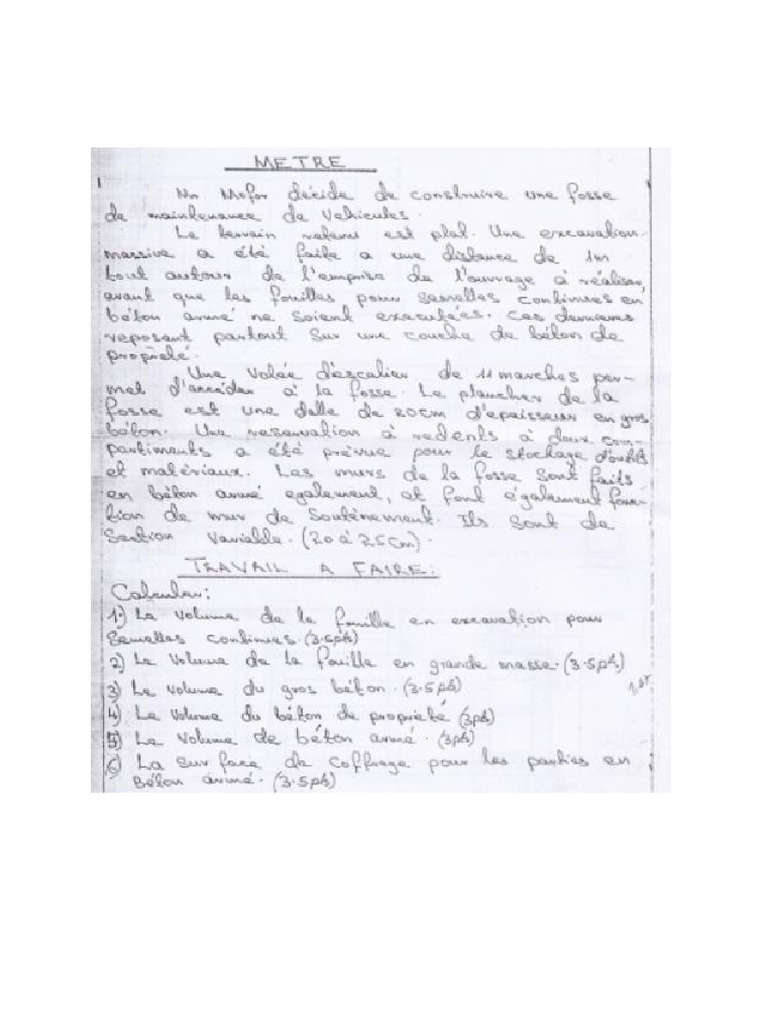 METRE
Mr Mefor décide de construire une fosse
de maintenance de Vehicules.
Le terrain retenu est plat. Une excavation
massive a été faite a une distance de 1m
tout autour de l'emprise de l'ouvrage à réaliser,
avant que les fouilles pour semelles continues en
béton armé ne soient executées. Ces dernieres
reposent partout Sur une couche de béton de
propriété.
Une Volée d'escalier de 11 marches per-
met d'accéder à la fosse. Le plancher de la
fosse est une dalle de 20cm d'epaisseur en gros
béton. Une reservation à redents à deux com-
partiments a été prévue pour le stockage d'outils
et matériaux. Les murs de la fosse sont faits
en béton armé egalement, et font également fonc-
tion de mur de Soutènement. Ils sont de
Section Variable. (20 à 25cm).
TRAVAIL A FAIRE:
Calculer:
1) Le Volume de la fouille en excavation pour
Semelles continues. (3.5pts)
2) Le Volume de la fouille en grande masse. (3.5pts)
3) Le Volume du gros béton. (3.5pts)
4) Le Volume du béton de propriété (3pts)
5) Le Volume de béton armé. (3pts)
6) La surface de coffrage pour les parties en
Béton armé. (3.5pts)